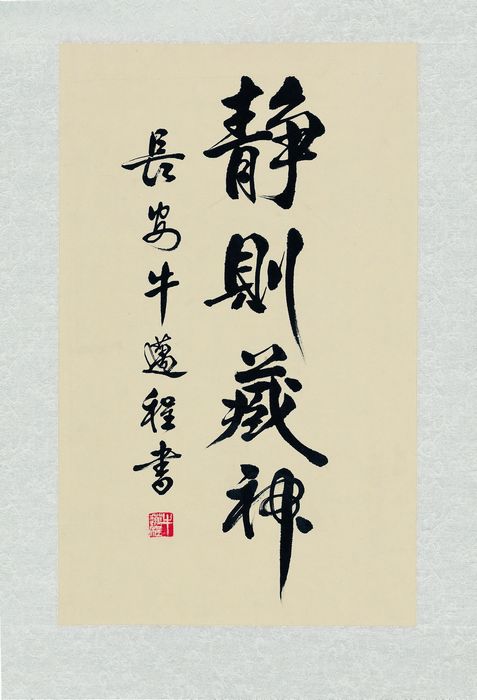 静則藏神
長安牛邁程書